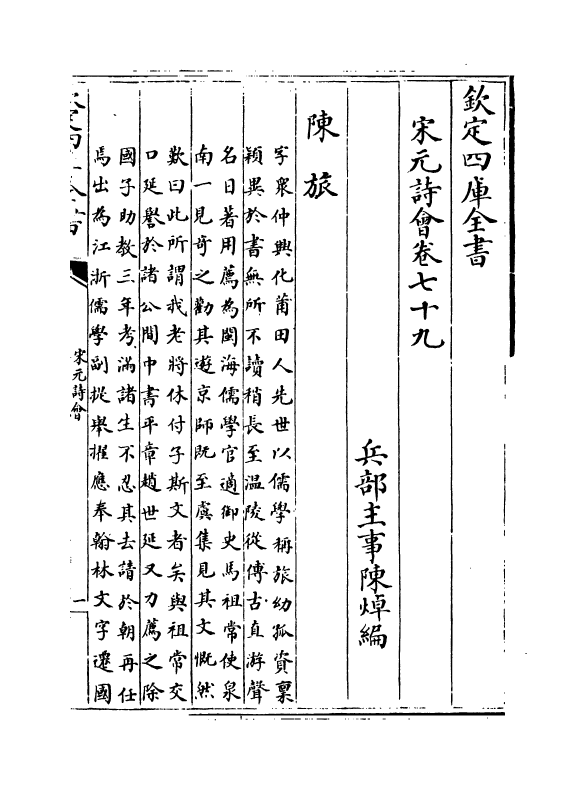 欽定四庫全書
宋元詩會卷七十九
兵部主事陳焯編
陳旅
字衆仲興化莆田人先世以儒學稱旅幼孤資稟
穎異於書無所不讀稍長至温陵從傅古直游聲
名日著用薦為閩海儒學官適御史馬祖常使泉
南一見奇之勸其遊京師既至虞集見其文慨然
歎曰此所謂我老將休付子斯文者矣與祖常交
口延譽於諸公間中書平章趙世延又力薦之除
國子助教三年考滿諸生不忍其去請於朝再任
焉出為江浙儒學副提舉擢應奉翰林文字遷國
宋元詩會
一